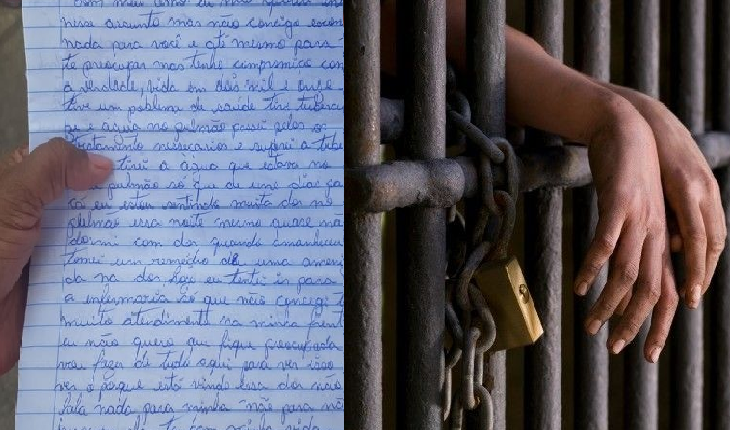 nesse assunto mas não consigo escon
nada para você e até mesmo para
te preocupar mas tenho compromisso com
a verdade, vida em dois mil e
tive um poblema de saúde tive tubercu
e água no pulmão passei pelos
tratamento nescesarios e superei a tube
tirei a água que estava no
pulmão só que de uns dias
eu estou sentindo muita dor no
pulmão essa noite mesmo quase não
dormi com dor quando amanheceu
tomei um remédio deu uma ameni
da na dor, hoje eu tentei ir para
a enfermaria só que não consegi
muito atendimento na minha frent
eu não quero que fique preocupada
vou fazer de tudo aqui para ver isso
ver o porque está vindo essa dor não
fala nada para minha mãe para não